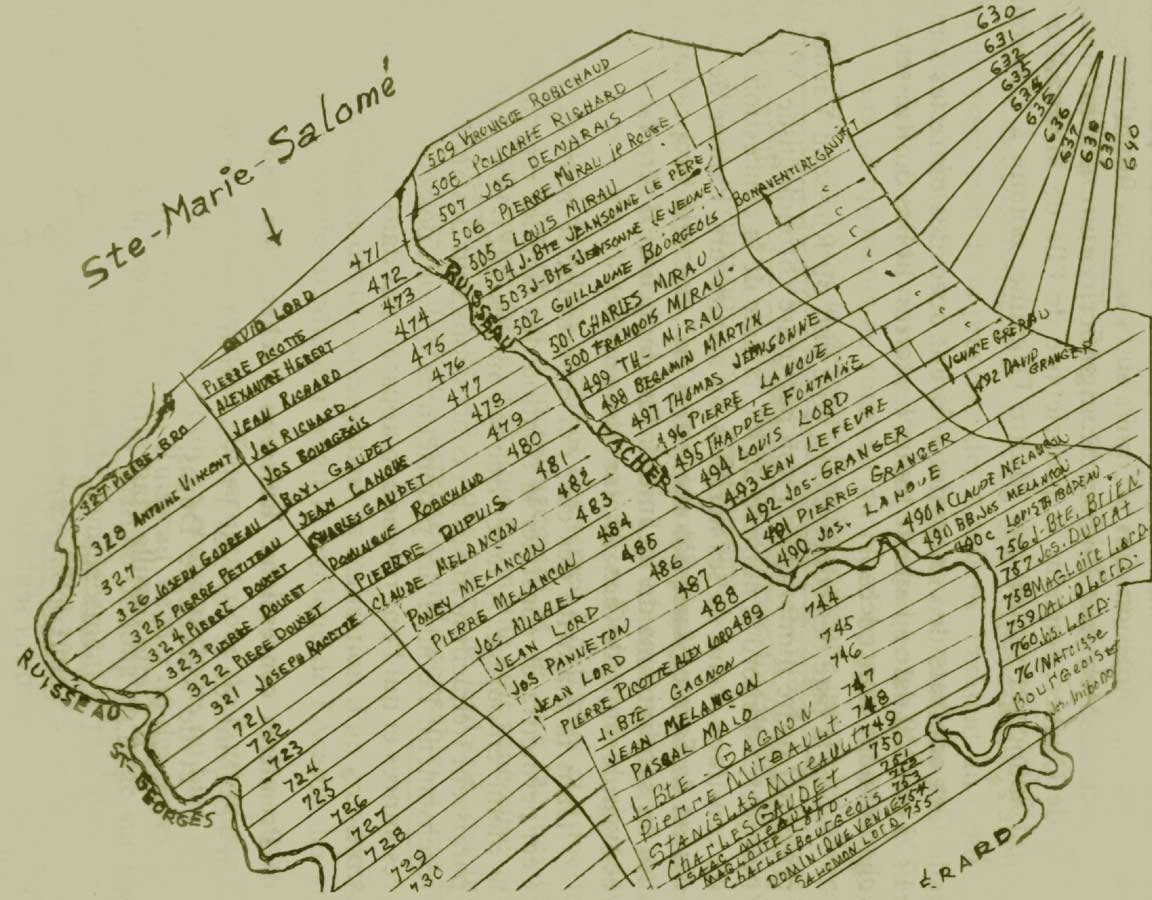 Ste-Marie-Salomé
630
631
632
633
634
635
636
637
638
639
640
509 VERONIQUE ROBICHAUD
508 POLICARPE RICHARD
507 JOS DEMARAIS
506 PIERRE MIRAU JR ROUGE
505 LOUIS MIRAU
504 J. BTE JEANSONNE LE PÈRE
503 J-BTE JEANSONNE LE JEUNE
502 GUILLAUME BOURGEOIS
501 CHARLES MIRAU
500 FRANÇOIS MIRAU
499 TH- MIRAU
498 BEGAMIN MARTIN
497 THOMAS JEANSONNE
496 PIERRE LANOUE
495 THADDÉE FONTAINE
494 LOUIS LORD
493 JEAN LEFEVRE
492 JOS- GRANGER
491 PIERRE GRANGER
490 JOS. LANOUE
490 A CLAUDE MELANÇON
490 BB JOS MELANÇON
490 C LOUIS THIBODEAU
BONAVENTURE GAUDET
492 DAVID GRANGER
RUISSEAU VACHER
471
DAVID LORD
472
PIERRE PICOTTE
473
ALEXANDRE HEBERT
474
JEAN RICHARD
475
JOS RICHARD
476
JOS BOURGEOIS
477
BOV. GAUDET
478
JEAN LANOUE
479
CHARLES GAUDET
480
DOMINIQUE ROBICHAUD
481
PIERRE DUPUIS
482
CLAUDE MELANÇON
483
PONEY MELANÇON
484
PIERRE MELANÇON
485
JOS MICHEL
486
JEAN LORD
487
JOS PANNETON
488
JEAN LORD
PIERRE PICOTTE ALEX LORD 489
744
J. BTE GAGNON
745
JEAN MELANÇON
746
PASCAL MAIO
747
J-Bte - GAGNON
748
Pierre Mireault
749
Stanislas Mireault
750
Charles Gaudet
751
ISAAC MIREAULT
752
MAGLOIRE LORD
753
CHARLES BOURGEOIS
754
DOMINIQUE VENNE
SALOMON LORD 755
756 J- Bte. BRIEN
757 Jos. DUPRAT
758 MAGLOIRE LORD
759 DAVID LORD
760 JOS. LORD
761 NARCISSE
BOURGEOIS
327 PIERRE BRO
328 ANTOINE VINCENT
327
326 JOSEPH GODREAU
325 PIERRE PETITEAU
324 PIERRE DOUCET
323 PIERRE DOUCET
322 PIERE DOUCET
321 JOSEPH RACETTE
721
722
723
724
725
726
727
728
729
730
RUISSEAU
ST-GEORGES
ÉRARD